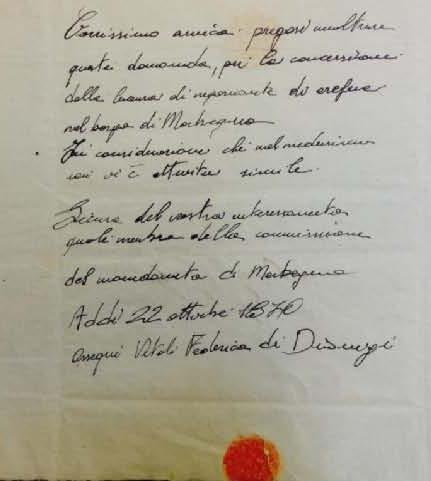 Carissimo amico pregasi inoltrare
questa domanda, per la concessione
della licenza di negoziante di orefice
nel borgo di Morbegno
In considerazione che nel medesimo
non vi è attività simile.
Sicura del vostro interessamento
quale membro della commissione
del mandamento di Morbegno
Addì 22 ottobre 1870
ossequi Vitali Federica di Dionigi